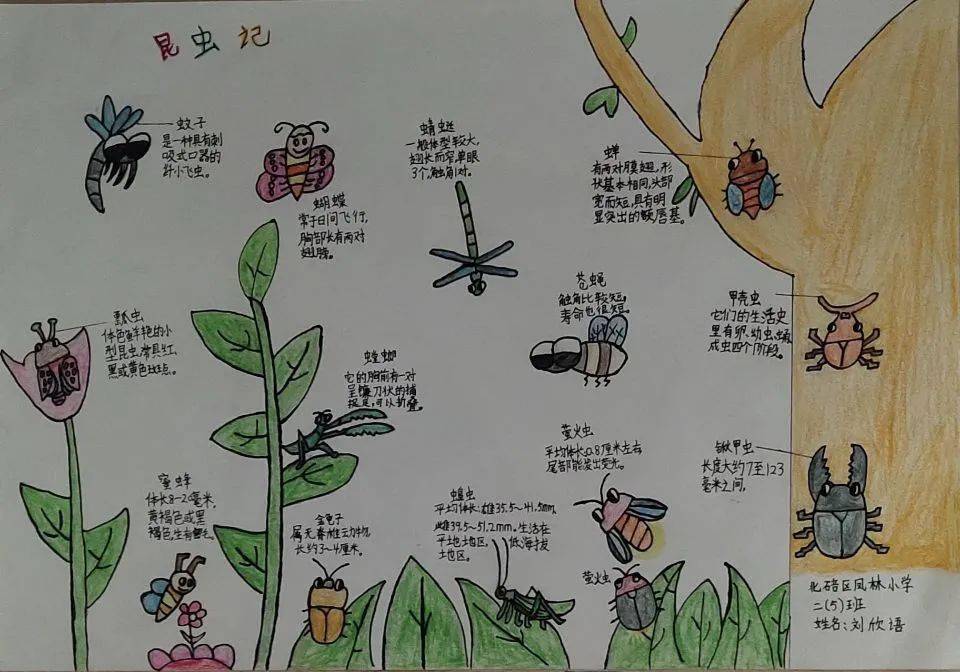 昆虫记
蚊子
是一种具有刺
吸式口器的
纤小飞虫。
蝴蝶
常于日间飞行,
胸部长有两对
翅膀。
蜻蜓
一般体型较大,
翅长而窄,单眼
3个,触角1对。
蝉
有两对膜翅,形
状基本相同,头部
宽而短,具有明
显突出的额唇基。
瓢虫
体色鲜艳的小
型昆虫,常具红、
黑或黄色斑点。
苍蝇
触角比较短,
寿命也很短。
甲壳虫
它们的生活史
里有卵、幼虫、蛹、
成虫四个阶段。
螳螂
它的胸前有一对
呈镰刀状的捕
捉足,可以折叠。
萤火虫
平均体长0.8厘米左右
尾部能发出荧光。
锹甲虫
长度大约7至123
毫米之间。
蜜蜂
体长8-20毫米,
黄褐色或黑
褐色,生有密毛。
金龟子
属无脊椎动物
长约3~4厘米。
蝗虫
平均体长:雄35.5~41.5mm,
雌39.5~51.2mm.生活在
平地地区、低海拔
土地区。
萤火虫
北碚区凤林小学
二(5)班
姓名:刘欣语